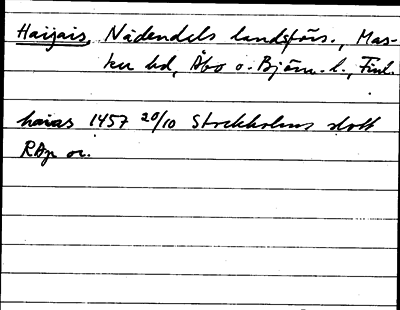 Haijais, Nådendels landsförs., Mas-
ku hd, Åbo o. Björn. l., Finl.
haias 1457 20/10 Stockholms slott
RAp or.